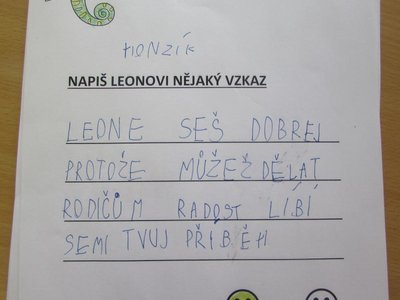 HONZÍK
NAPIŠ LEONOVI NĚJAKÝ VZKAZ
LEONE SEŠ DOBREJ
PROTOŽE MŮŽEŽ DĚLAT
RODIČŮM RADOST LÍBÍ
SEMI TVUJ PŘÍBĚH